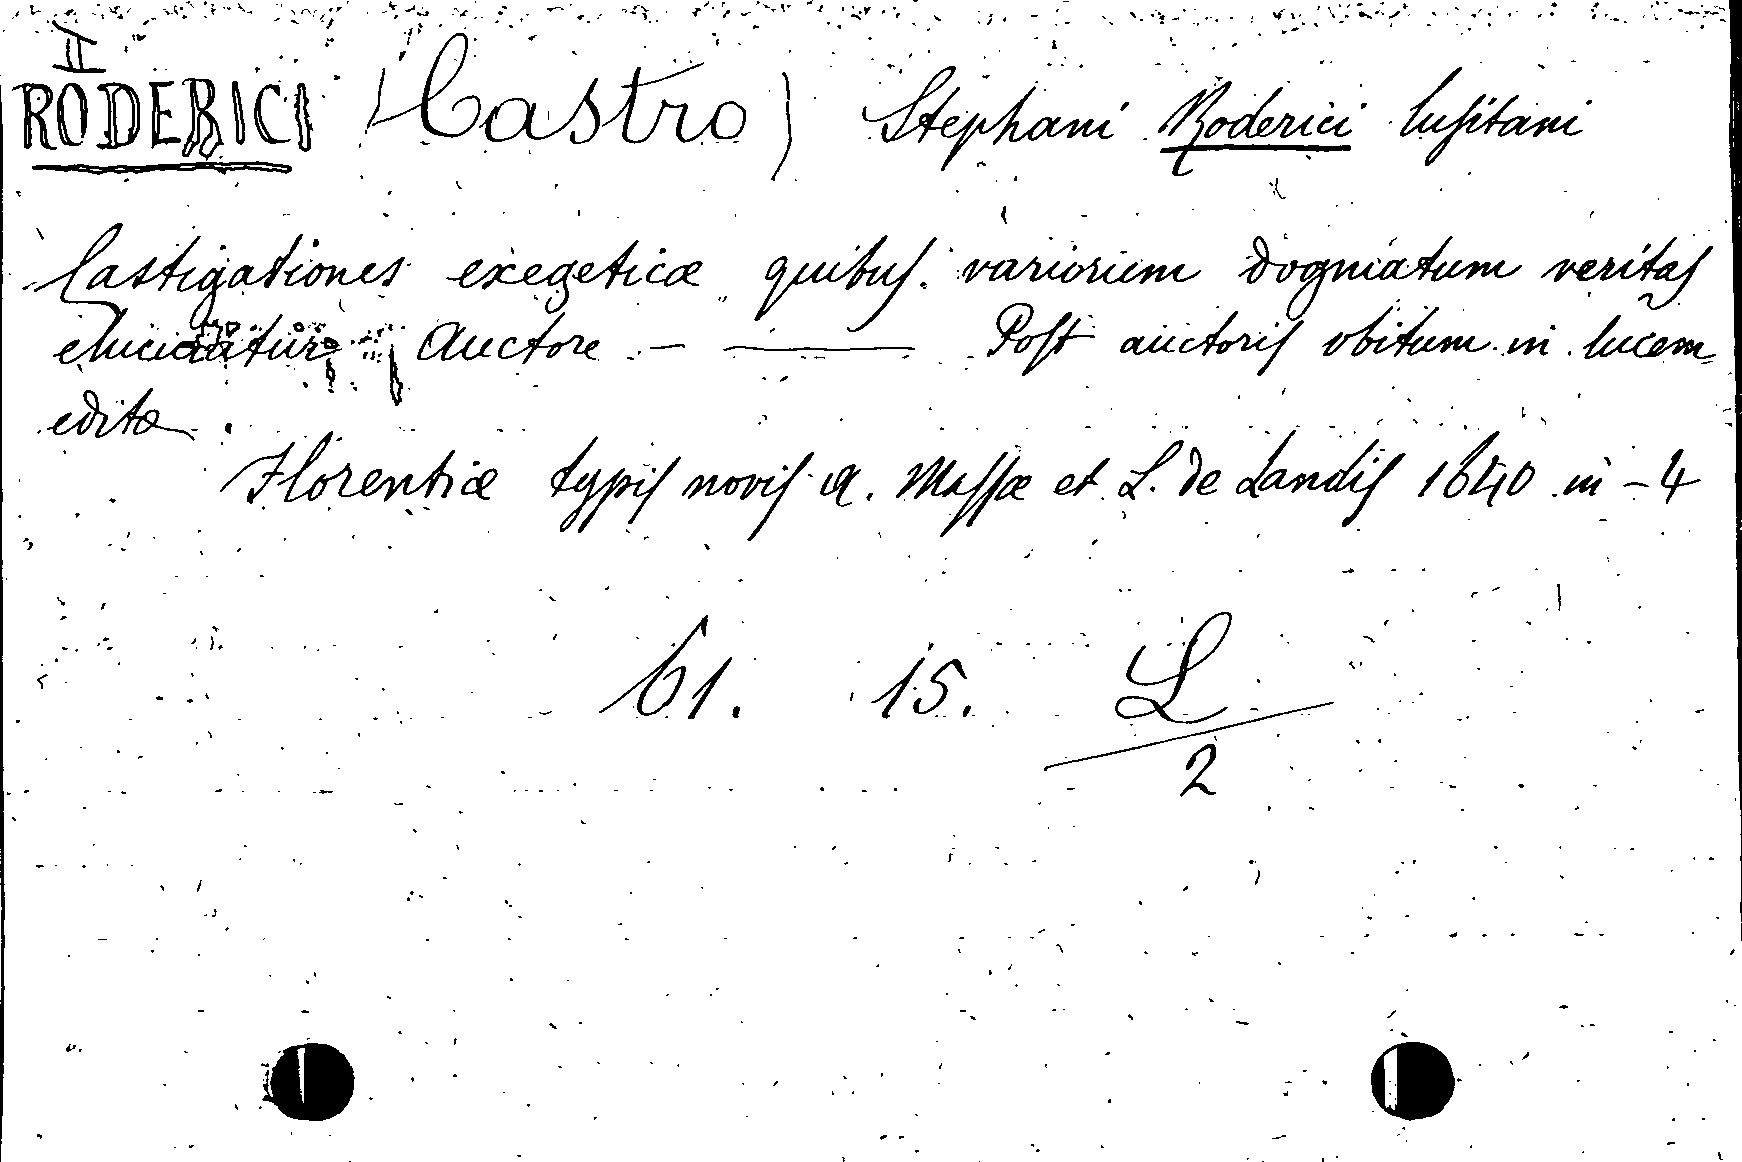 II
RODERICI (Castro) Stephani Roderici lusitani
Castigationes exegeticæ quibus variorum dogmatum veritas
elucidatur Auctore — —— Post auctoris obitum in lucem
editæ.
Florentiæ typis novis A. Massæ et L. de Landis 1640 in-4
61. 15. L
2